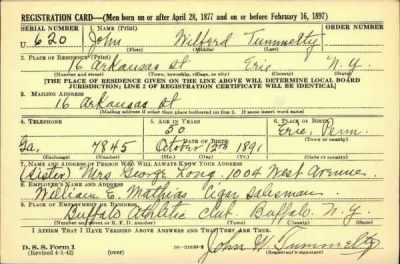 REGISTRATION CARD—(Men born on or after April 28, 1877 and on or before February 16, 1897)
SERIAL NUMBER 1. NAME (Print)
U 620 John Wilford Tummelty
(First) (Middle) (Last)
2. PLACE OF RESIDENCE (Print)
16 Arkansas St Erie N.Y.
(Number and street) (Town, township, village, or city) (County) (State)
[THE PLACE OF RESIDENCE GIVEN ON THE LINE ABOVE WILL DETERMINE LOCAL BOARD
JURISDICTION; LINE 2 OF REGISTRATION CERTIFICATE WILL BE IDENTICAL]
3. MAILING ADDRESS
16 Arkansas St
[Mailing address if other than place indicated on line 2. If same insert word same]
4. TELEPHONE 5. AGE IN YEARS 6. PLACE OF BIRTH
50 Erie, Penn.
DATE OF BIRTH (Town or county)
Ga. 7845 October 12th 1891
(Exchange) (Number) (Mo.) (Day) (Yr.) (State or country)
7. NAME AND ADDRESS OF PERSON WHO WILL ALWAYS KNOW YOUR ADDRESS
(Sister) Mrs George Long. 1004 West Avenue.
8. EMPLOYER'S NAME AND ADDRESS
William E. Mathias Cigar Salesman.
9. PLACE OF EMPLOYMENT OR BUSINESS
Buffalo Athletic Club. Buffalo. N.Y.
(Number and street or R. F. D. number) (Town) (County) (State)
I AFFIRM THAT I HAVE VERIFIED ABOVE ANSWERS AND THAT THEY ARE TRUE.
D. S. S. Form 1
(Revised 4-1-42) (over) John W Tummelty
(Registrant's signature)